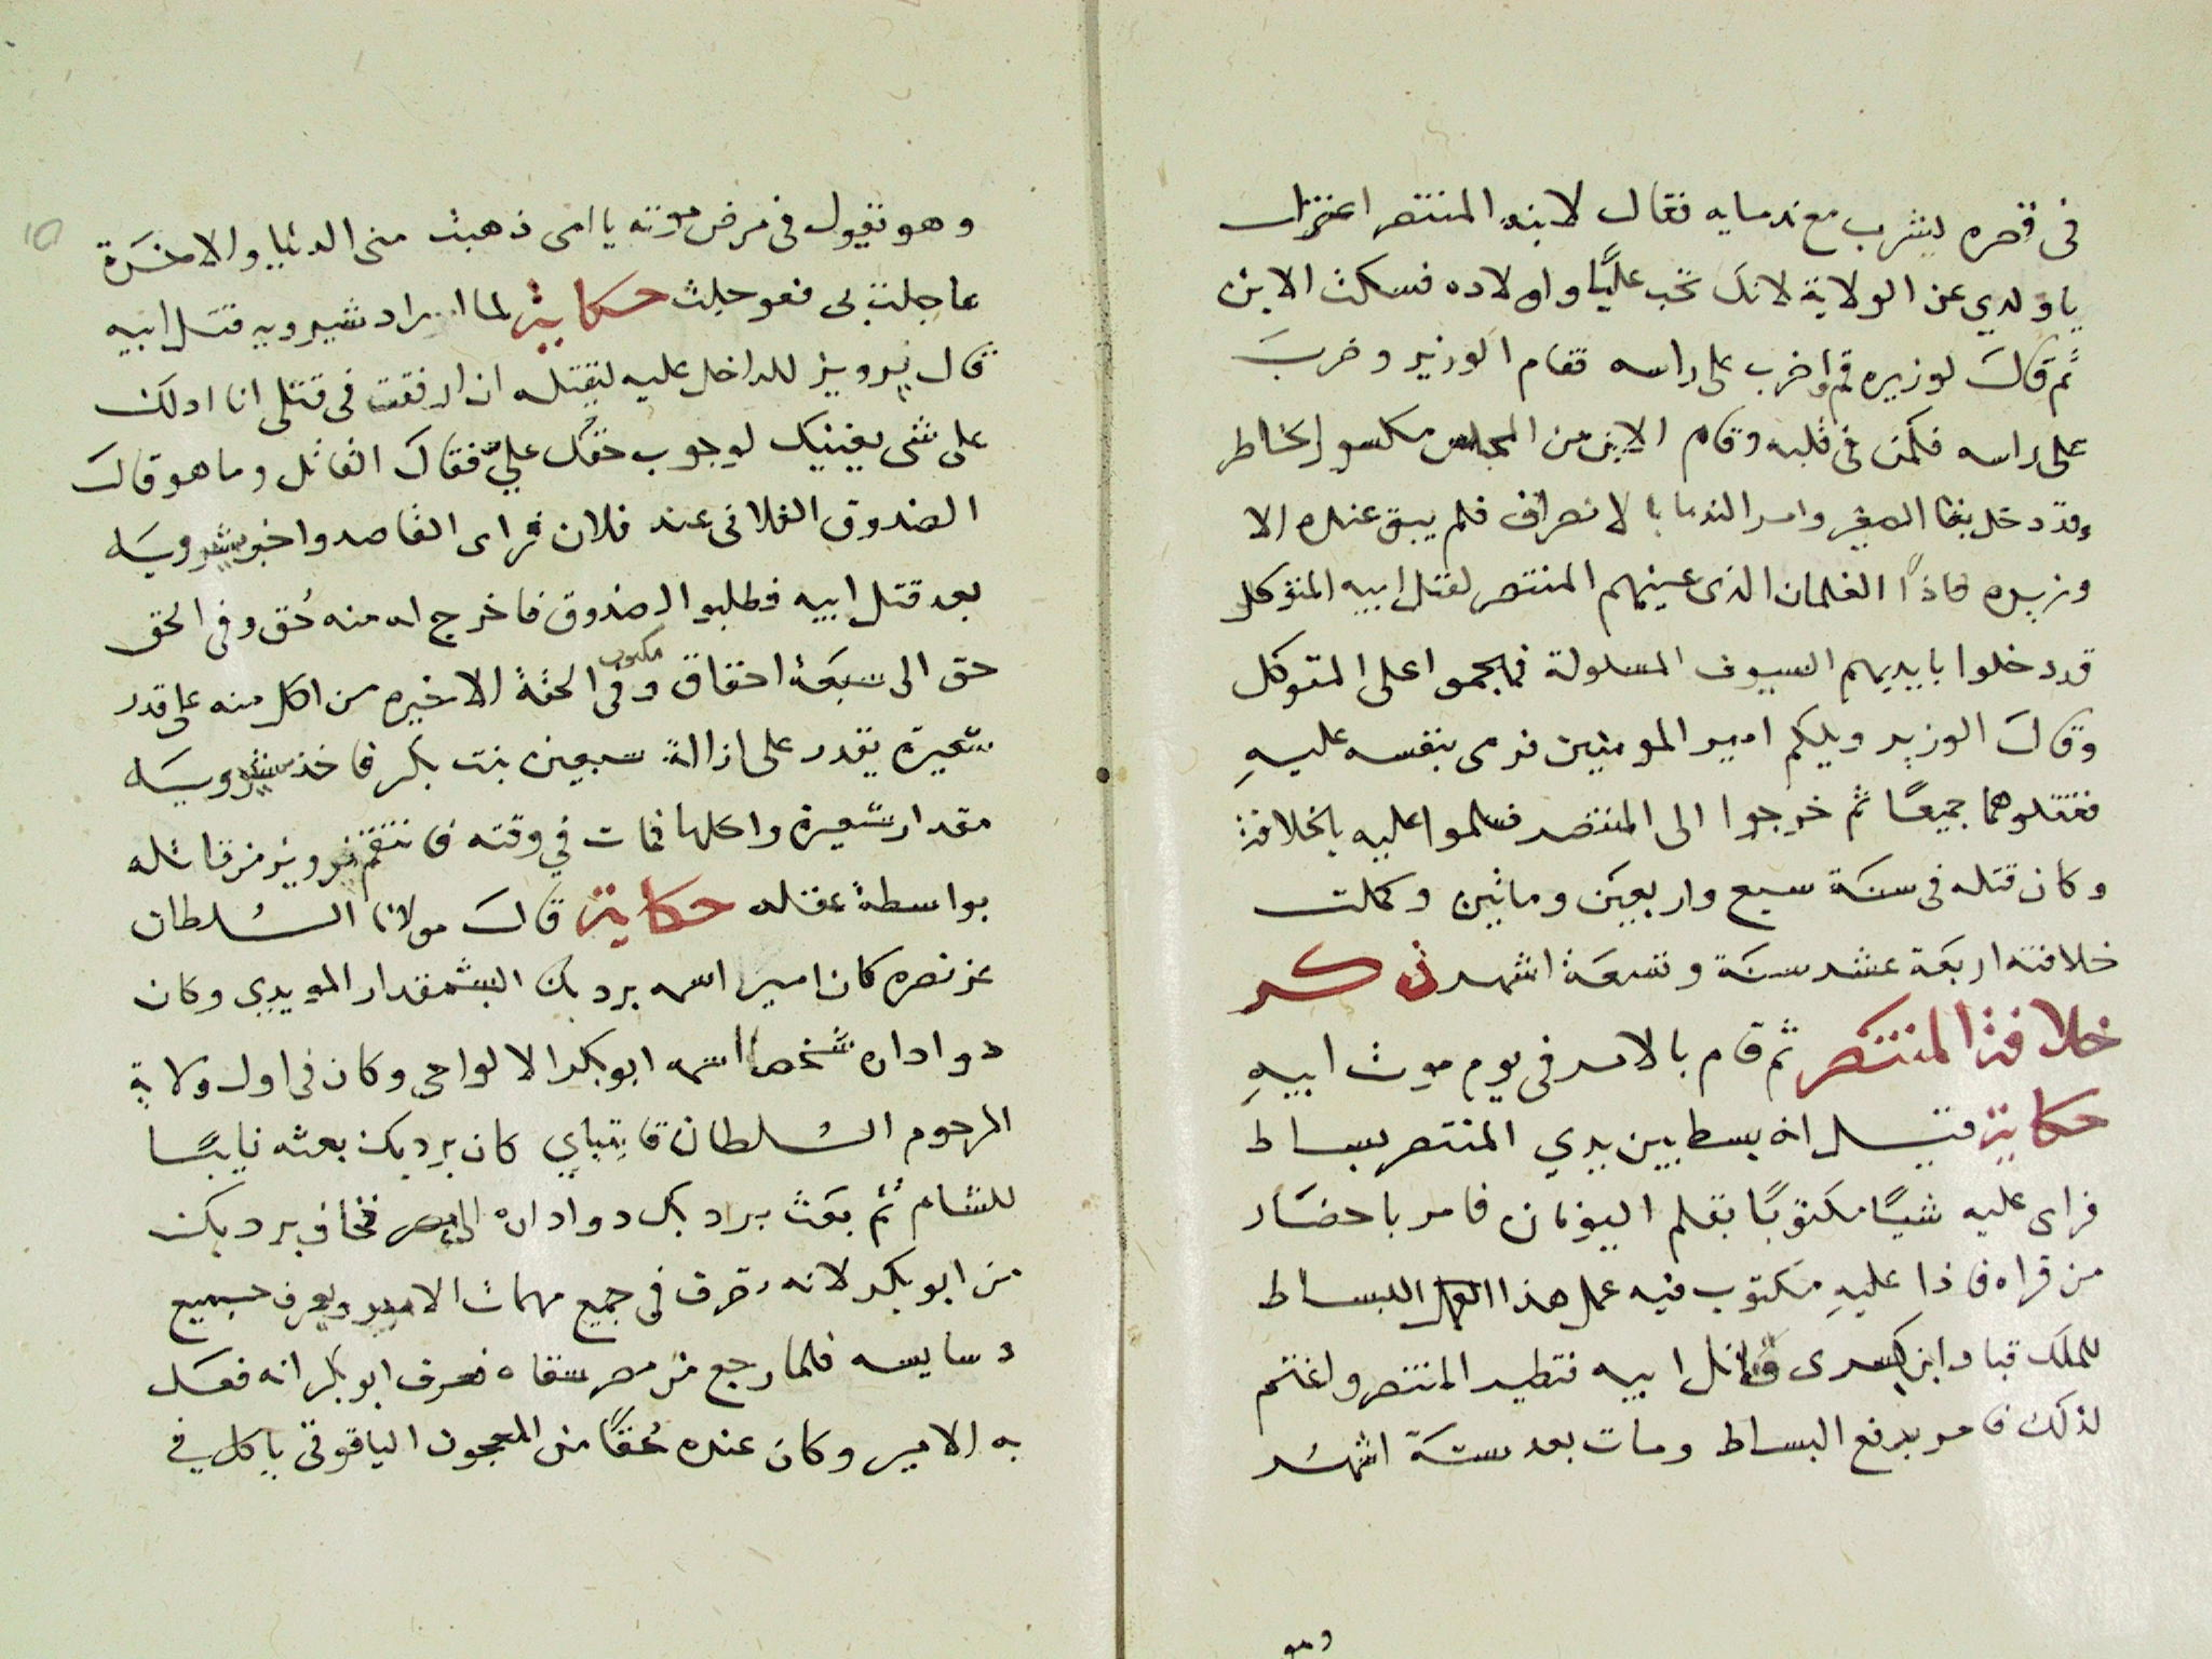 فى قصره يشرب مع ندمايه فقال لابنه المنتصر اعتزل
يا ولدي عن الولاية لانك تحب عليًا واولاده فسكت الابن
ثم قال لوزيره قم واضرب على راسه فقام الوزير وضرب
على راسه فكمن فى قلبه وقام الابن من المجلس مكسور الخاطر
وقد دخل بغا الصغير وامر الندما بالانصراف فلم يبق عنده الا
وزيره فاذا الغلمان الذى عينهم المنتصر لقتل ابيه المتوكل
قد دخلوا بايديهم السيوف المسلولة فهجموا على المتوكل
وقال الوزير ويلكم امير المومنين فرمى بنفسه عليه
فقتلوهما جميعًا ثم خرجوا الى المنتصر فسلموا عليه بالخلافة
وكان قتله فى سنة سبع واربعين وماتين وكملت
خلافته اربعة عشر سنة وتسعة اشهر ذكر
خلافة المنتصر ثم قام بالامر فى يوم موت ابيه
حكاية قيل انه بسط بين يدي المنتصر بساط
فراى عليه شيًا مكتوبًا بقلم اليونان فامر باحضار
من قراه فاذا عليه مكتوب فيه عمل هذا البساط
للملك قباد ابن كسرى قاتل ابيه فتطير المنتصر واغتم
لذلك فامر برفع البساط ومات بعد ستة اشهر
وهو
وهو يقول فى مرض موته يا امى ذهبت منى الدنيا والاخرة
عاجلت بى فعوجلت حكاية لما اراد شيرويه قتل ابيه
قال پرويز للداخل عليه ليقتله ان ارفقت فى قتلى انا ادلك
على شى يغنيك لوجوب حقك عليّ فقال القاتل وما هو قال
الصندوق الفلانى عند فلان فراى القاصد واخبر شيرويه
بعد قتل ابيه فطلبوا الصندوق فاخرج له منه حُق وفى الحق
حق الى سبعة احقاق وفى الحقة الاخيره مكتوب من اكل منه على قدر
شعيرة يقدر على ازالة سبعين بنت بكر فاخذ شيرويه
مقدار شعيرة واكلها فمات في وقته فانتقم پرويز من قاتله
بواسطة عقله حكاية قال مولانا السلطان
عز نصره كان امير اسمه برد بك البشمقدار المويدى وكان
دواداره شخصا اسمه ابوبكر الالواحى وكان فى اول ولاية
المرحوم السلطان قايتباي كان برد بك بعثه نايبًا
للشام ثم بعث برد بك دواداره الى مصر فخاف برد بك
من ابو بكر لانه تصرف فى جميع مهمات الامير ويعرف جميع
دسايسه فلما رجع من مصر سقاه فعرف ابو بكر انه فعل
به الامير وكان عنده حُقًا من المعجون الياقوتى ياكل في